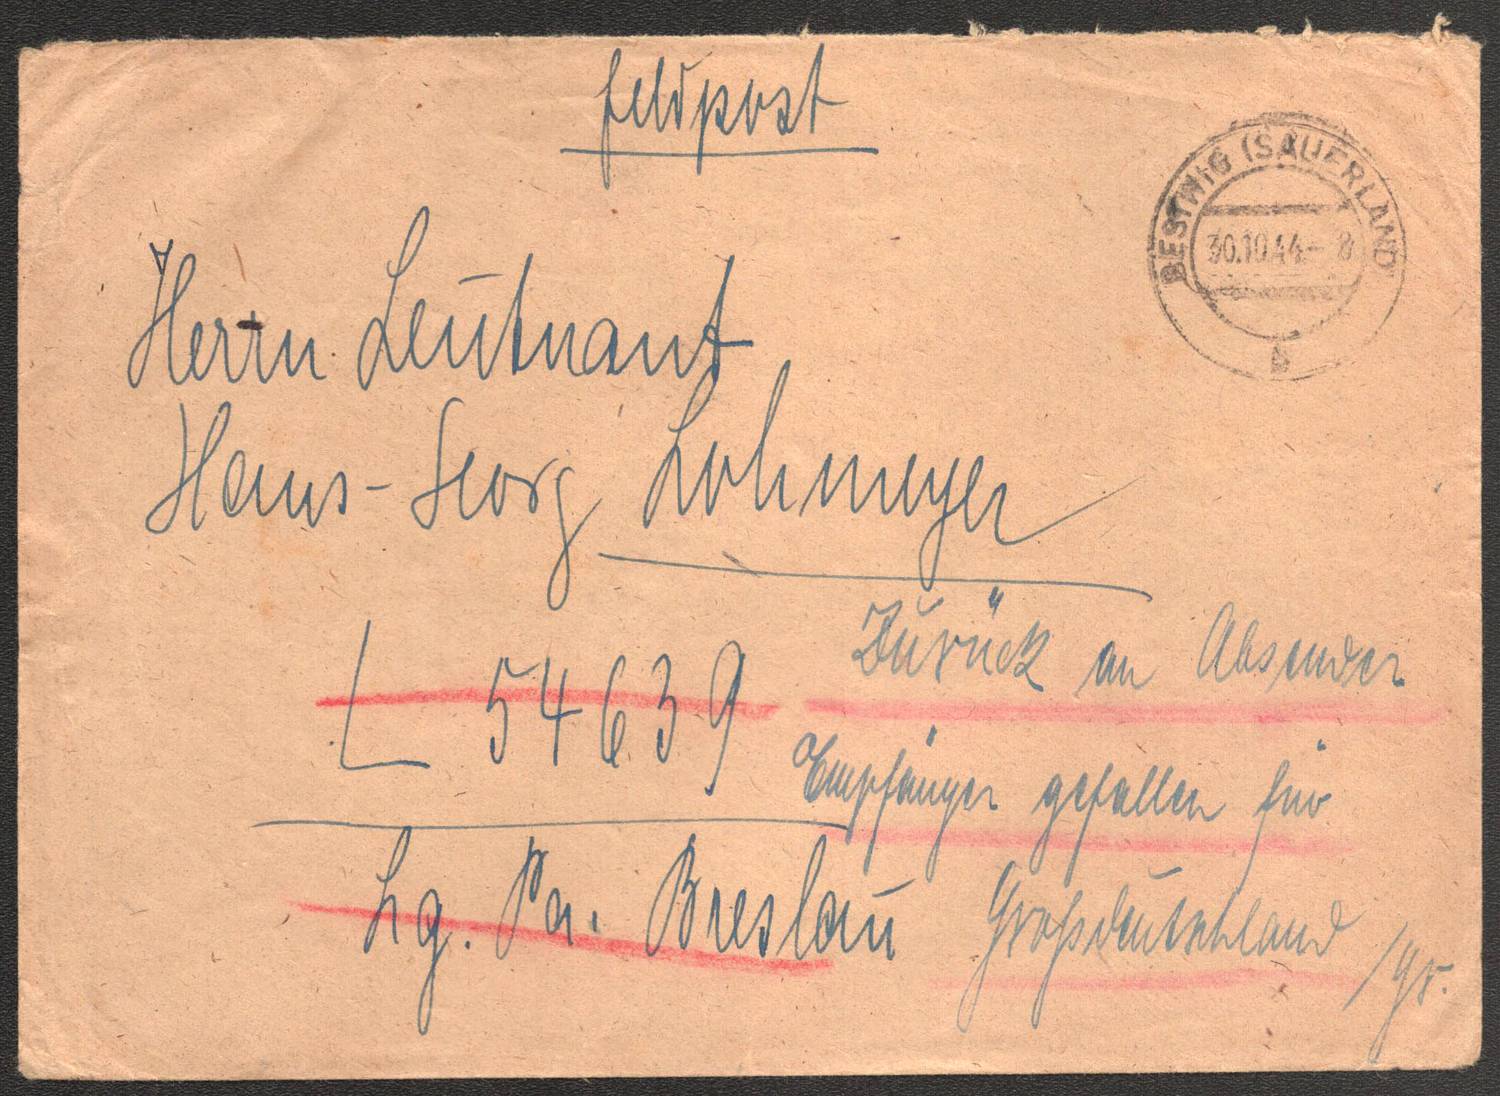 Feldpost
BESTWIG (SAUERLAND)
30.10.44.- 8
b
Herrn Leutnant
Hans-Georg Lohmeyer
L 54639
Lg. Pa. Breslau
Zurück an Absender
Empfänger gefallen für
Großdeutschland
/gr.